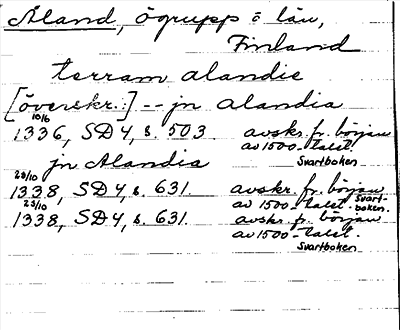 Åland, ögrupp o län,
Finland
terram alandie
[överskr.:] -- jn alandia
10/6
1336, SD4, s. 503. avskr. fr. början
av 1500-talet.
Svartboken
jn Alandia
23/10
1338, SD4, s. 631. avskr. fr. början
av 1500-talet. Svart-
boken.
23/10
1338, SD4, s. 631. avskr. fr. början
av 1500-talet.
Svartboken